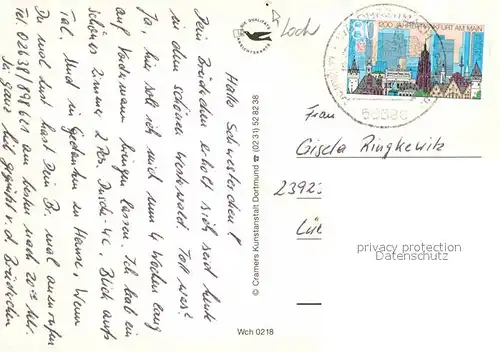 Hallo Schwesterchen!
Dein Brüderchen erholt sich seit heute
in dem schönen Westerwald. Toll was?
Ja, hier soll ich mich nun 4 Wochen lang
auf Vordermann bringen lassen. Ich hab ein
schönes Zimmer, 2 Pers. Dusche WC, Blick aufs
Tal. Und in Gedanken zu Hause. Wenn
Du mal Lust hast Dein Br. mal anzurufen
Tel. 02634/898611 am besten nach 20 Uhr.
Du ganz lieb gegrüßt v. d. Brüderchen
Loch
© Cramers Kunstanstalt Dortmund ☎ (0231) 528238
Wch 0218
80
1200 JAHRE FRANKFURT AM MAIN
Frau
Gisela Ringkewitz
2392
Lü
privacy protection
Datenschutz